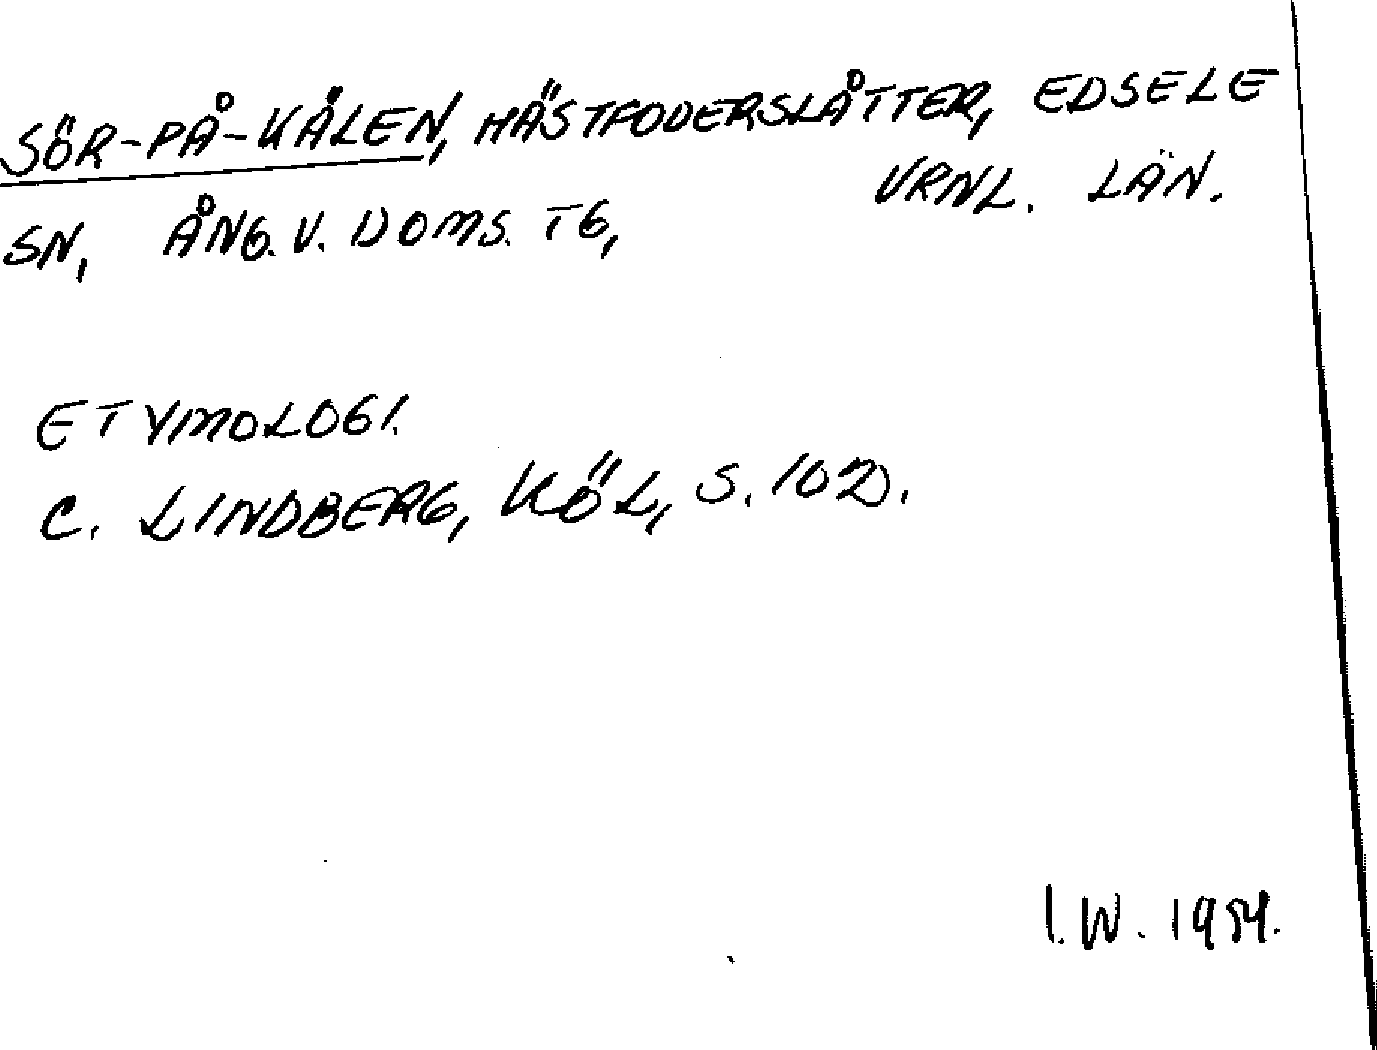 SÖR-PÅ-KÅLEN, HÄSTFODERSLÅTTER, EDSELE
SN, ÅNG. V. DOMS. TG, VRNL. LÄN.
ETYMOLOGI.
C. LINDBERG, KÖL, S. 102.
I.W. 1954.